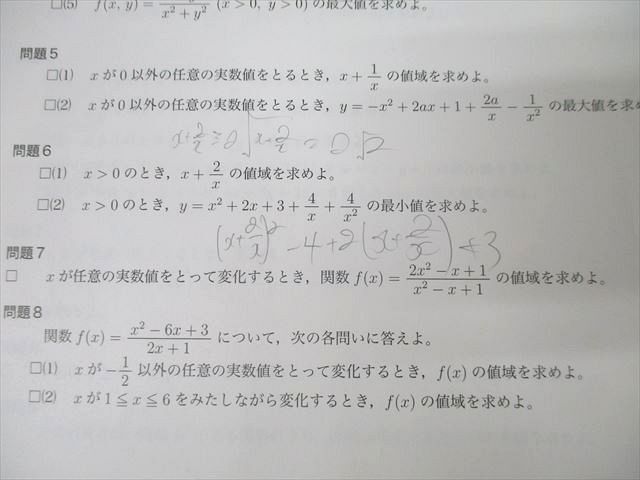 □(5) f(x, y) = ―― x² + y² (x > 0, y > 0) の最大値を求めよ。
問題5
□(1) x が 0 以外の任意の実数値をとるとき, x + 1/x の値域を求めよ。
□(2) x が 0 以外の任意の実数値をとるとき, y = −x² + 2ax + 1 + 2a/x − 1/x² の最大値を求
x + 2/x ≧ 2√(x · 2/x) = 2√2
問題6
□(1) x > 0 のとき, x + 2/x の値域を求めよ。
□(2) x > 0 のとき, y = x² + 2x + 3 + 4/x + 4/x² の最小値を求めよ。
(x + 2/x)² − 4 + 2(x + 2/x) + 3
問題7
□ x が任意の実数値をとって変化するとき, 関数 f(x) = (2x² − x + 1)/(x² − x + 1) の値域を求めよ。
問題8
関数 f(x) = (x² − 6x + 3)/(2x + 1) について, 次の各問いに答えよ。
□(1) x が −1/2 以外の任意の実数値をとって変化するとき, f(x) の値域を求めよ。
□(2) x が 1 ≦ x ≦ 6 をみたしながら変化するとき, f(x) の値域を求めよ。